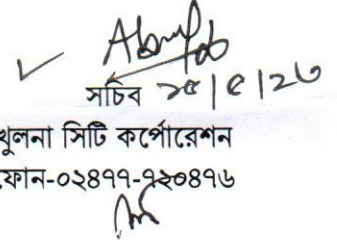 সচিব ২৫|৫|২৩
খুলনা সিটি কর্পোরেশন
ফোন-০২৪৭৭-৭২০৪৭৬